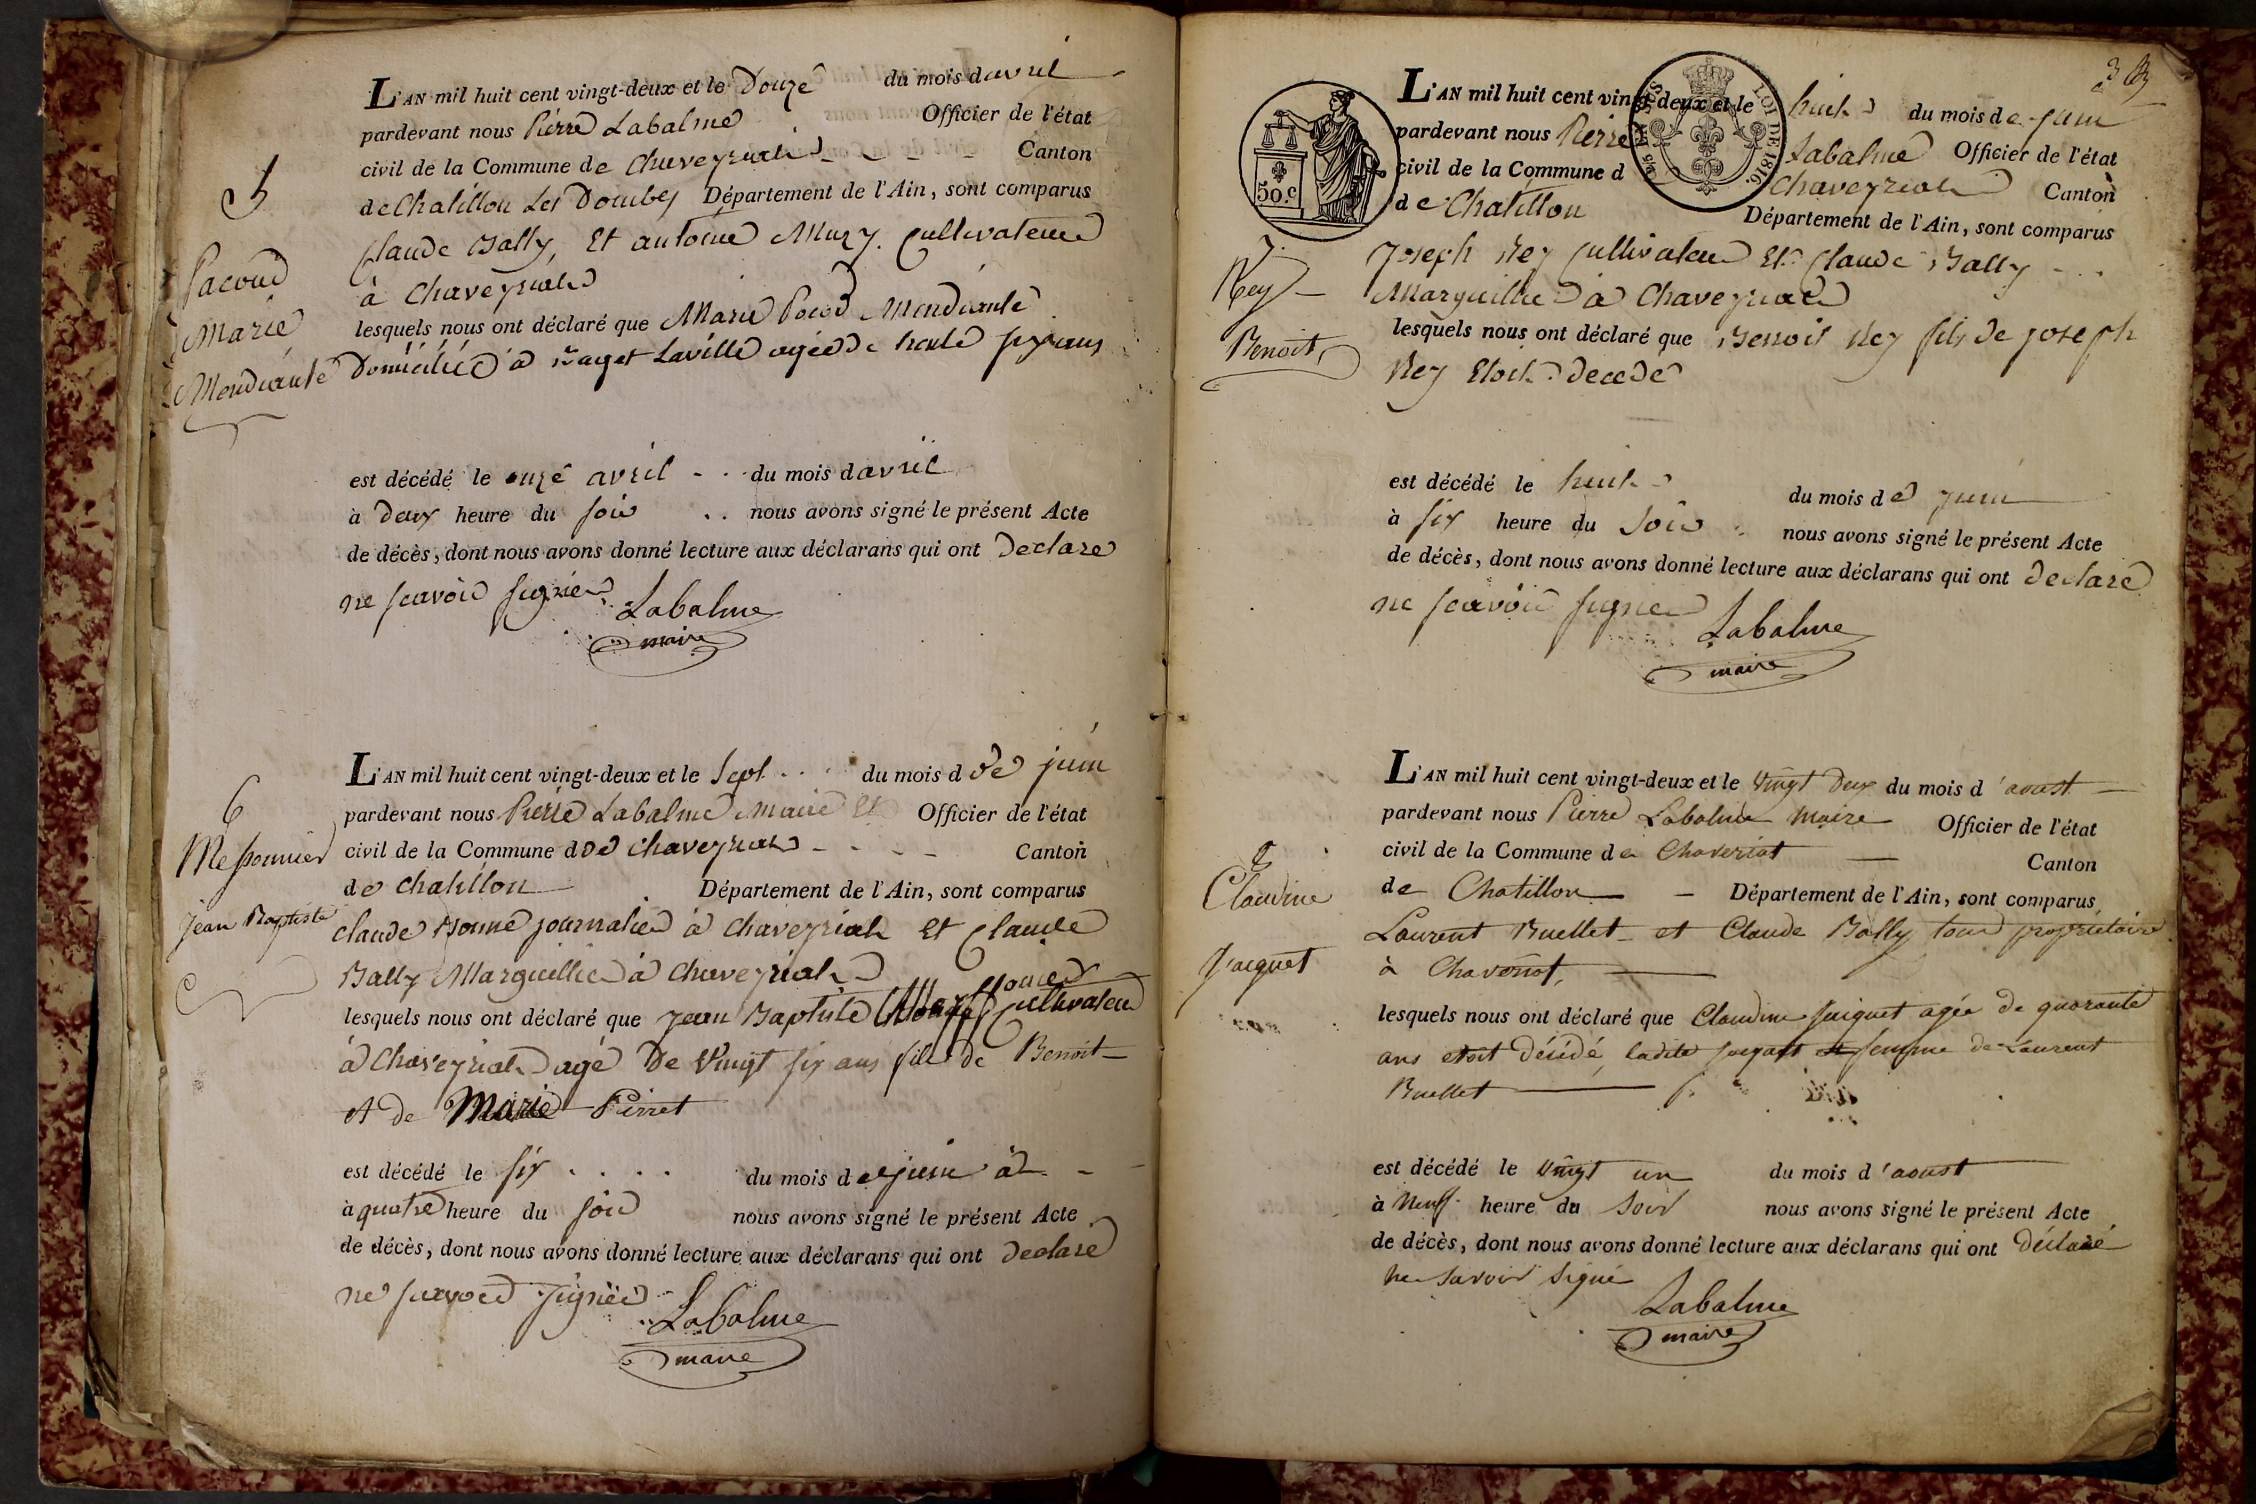 5
Pacoud
Marie
Mendiante
L'AN mil huit cent vingt-deux et le Douze du mois d avril
pardevant nous Pierre Labalme Officier de l'état
civil de la Commune de Chaveyriat Canton
de Chatillon Les Dombes Département de l'Ain, sont comparus
Claude Bally, Et antoine Mury. Cultivateur
à Chaveyriat
lesquels nous ont déclaré que Marie Mendiante
Domiciliée à Laville agée de six ans
est décédé le onze avril du mois d avril
à deux heure du soir nous avons signé le présent Acte
de décès, dont nous avons donné lecture aux déclarans qui ont Declare
ne scavoir signer Labalme
maire
6
Messonnier
Jean Baptiste
L'AN mil huit cent vingt-deux et le Sept du mois d de juin
pardevant nous Pierre Labalme Maire Et Officier de l'état
civil de la Commune d de Chaveyriat Canton
de Chatillon Département de l'Ain, sont comparus
Claude Bonne journalier à Chaveyriat Et Claude
Bally Marguillier à Chaveyriat
lesquels nous ont déclaré que Jean Baptiste Cultivateur
à Chaveyriat agé De Vingt six ans fils de Benoit
et de Marie Pirret
est décédé le six du mois de juin
à quatre heure du soir nous avons signé le présent Acte
de décès, dont nous avons donné lecture aux déclarans qui ont declare
ne scavoir signer Labalme
maire
3
50.c
LOI DE 1816.
7.
Rey
Benoit
L'AN mil huit cent vingt-deux et le huit du mois de juin
pardevant nous Pierre Labalme Officier de l'état
civil de la Commune d Chaveyriat Canton
de Chatillon Département de l'Ain, sont comparus
Joseph Rey Cultivateur Et Claude Bally
Marguillier à Chaveyriat
lesquels nous ont déclaré que Benoit Rey fils de joseph
Rey Etoit decede
est décédé le huit du mois de juin
à six heure du soir nous avons signé le présent Acte
de décès, dont nous avons donné lecture aux déclarans qui ont declare
ne scavoir signer Labalme
maire
8
Claudine
Jacquet
L'AN mil huit cent vingt-deux et le vingt deux du mois d'aoust
pardevant nous Pierre Labalme Maire Officier de l'état
civil de la Commune de Chaveriat Canton
de Chatillon Département de l'Ain, sont comparus
Laurent Buellet et Claude Bally tous propriétaire
à Chaveriat,
lesquels nous ont déclaré que Claudine Jaiquet agée de quarante
ans etoit décédé, ladite femme de Laurent
Buellet
est décédé le vingt un du mois d'aoust
à Neuf heure du Soir nous avons signé le présent Acte
de décès, dont nous avons donné lecture aux déclarans qui ont déclaré
ne savoir signé Labalme
maire